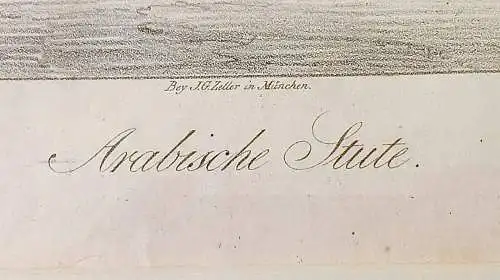 Bey J. G. Zeller in München.
Arabische Stute.